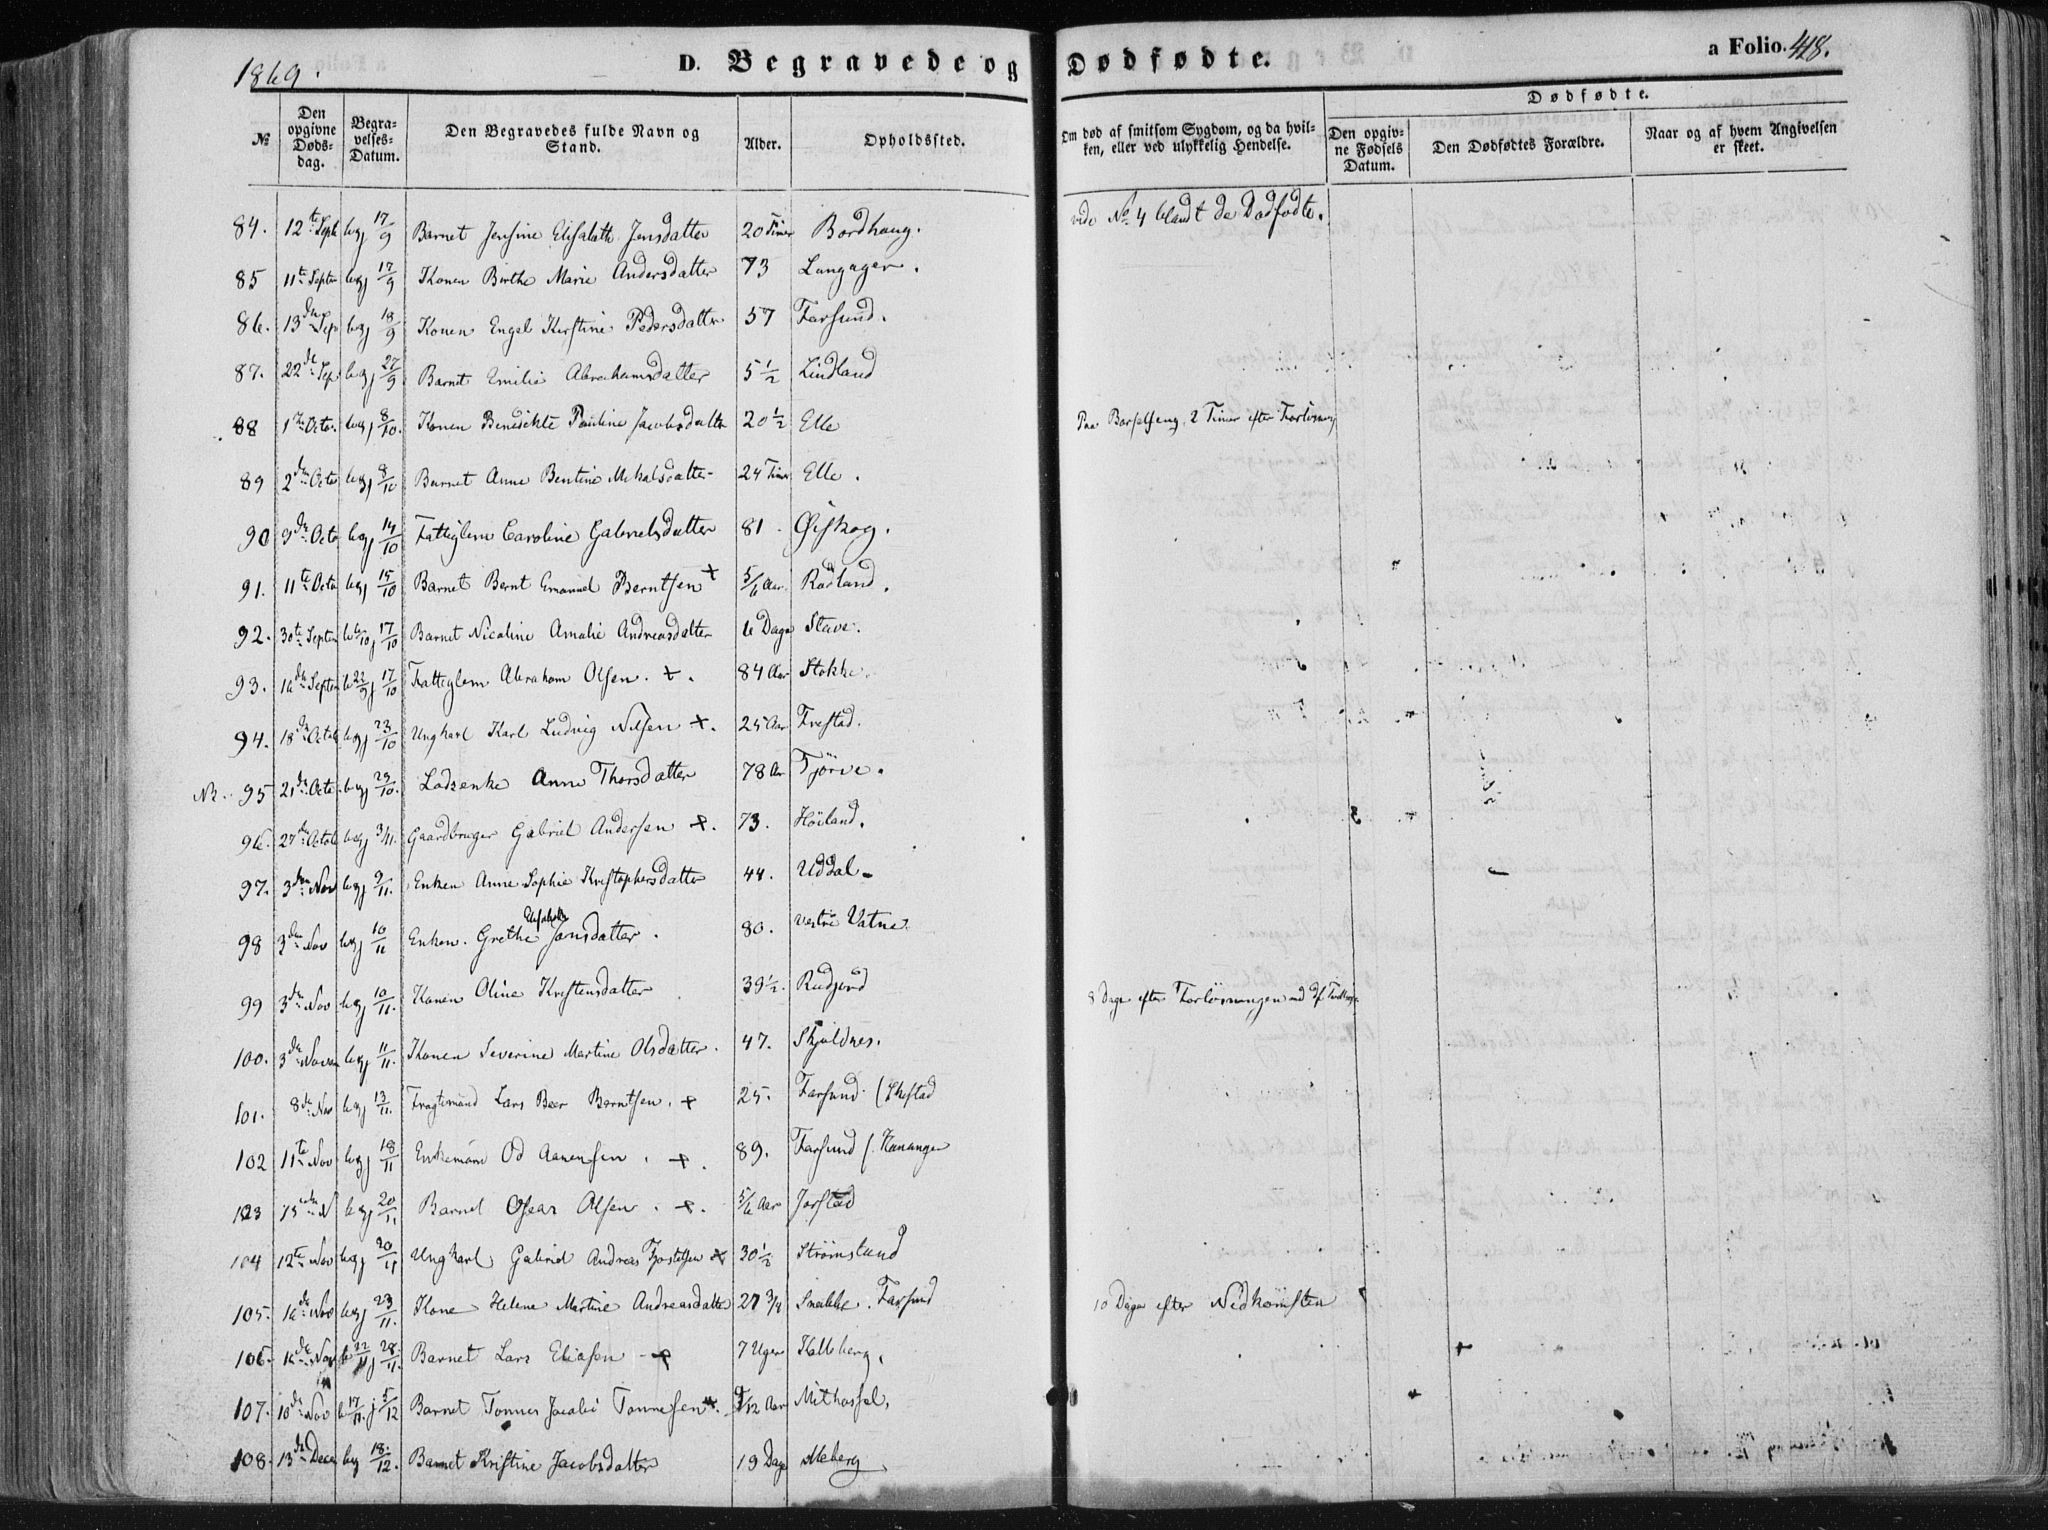 1869.
D. Begravede og Dødfødte.
a Folio. 418.
Dødfødte.
№
Den opgivne Døds-dag.
Begra-velses-Datum.
Den Begravedes fulde Navn og Stand.
Alder.
Opholdssted.
Om død af smitsom Sygdom, og da hvil-ken, eller ved ulykkelig Hendelse.
Den opgiv-ne Fødsels Datum.
Den Dødfødtes Forældre.
Naar og af hvem Angivelsen er skeet.
84. 12te Sept begj 17/9 Barnet Jensine Elisabeth Jensdatter 20 Timer Bordhaug. vide No 4 blandt de Dødfødte.
85 11te Septbr begj 17/9 Konen Birthe Marie Andersdatter 73 Langager.
86. 13de Sep begj 18/9 Konen Engel Kirstine Pedersdatter 57 Farsund.
87. 22de Sep begj 27/9 Barnet Emilie Abrahamsdatter 5 1/2 Lindland
88 1te Octo. begj 8/10. Konen Benedikte Pauline Jacobsdatter 20 1/2 Elle Paa Barselseng, 2 Timer efter Forløsning
89 2den Octo begj 8/10 Barnet Anne Bentine Mikalsdatter 24 Timer Elle.
90 9de Octo begj 14/10 Fattiglem Caroline Gabrielsdatter 81. Øiskog.
91. 11te Octo begj 15/10 Barnet Bernt Emanuel Berntsen + 5/6 Aar. Rødland.
92. 30te Septer b 6/10 j 17/10 Barnet Nicoline Amalie Andreasdatter 6 Dage Stave.
93. 16de Septer b 22/9 j 17/10 Fattiglem Abraham Olsen. +. 84 Aar Stokke.
94. 18de Octob begj 23/10 Ungkarl Karl Ludvig Nilsen +. 25 Aar Frestad.
95 21de Octo. begj 29/10. Lodsenke Anne Thorsdatter 78 Aar Tjörve.
96. 27de Octob begj 3/11. Gaardbruger Gabriel Andersen +. 73. Höiland.
97. 3den Nov begj 9/11. Enken Anne Sophie Kristophersdatter 44. Uddal
98 3den Nov begj 10/11 Enken. Grethe Elisabeth Jansdatter. 80. vestre Vatne.
99 3de Nov begj 10/11. Konen Oline Kristensdatter 39 1/2. Rudjord 8 Dage efter Forløsningen med
100. 3de Novem begj 11/11. Konen Severine Martine Olsdatter. 47. Skjoldnes.
101. 8de Nov begj 13/11. Fragtemand Lars Beer Berntsen. + 25. Farsund
102 11te Nov begj 18/11 Enkemann Od Aanensen. +. 89. Farsund /. Hananger
103 15de N begj 20/11 Barnet Oscar Olsen. +. 5/6 Aar Jorstad
104 12te Nov begj 20/11 Ungkarl Gabriel Andreas + 30 1/2 Strömsland
105. 16de Nov begj 23/11. Kone Helene Martine Andreasdatter 27 3/4 Farsund 10 Dage efter Nedkomsten
106. 16de Nov b 22/11 j 28/11. Barnet Lars Eliasen + 7 Uger Kalleberg.
107. 10de Nov b 17/11. j 5/12 Barnet Tonnes Jacobi Tonnesen +. 9/12 Aar Mithassel.
108. 13de Dece begj 18./12. Barnet Kristine Jacobsdatter 19 Dage Meberg